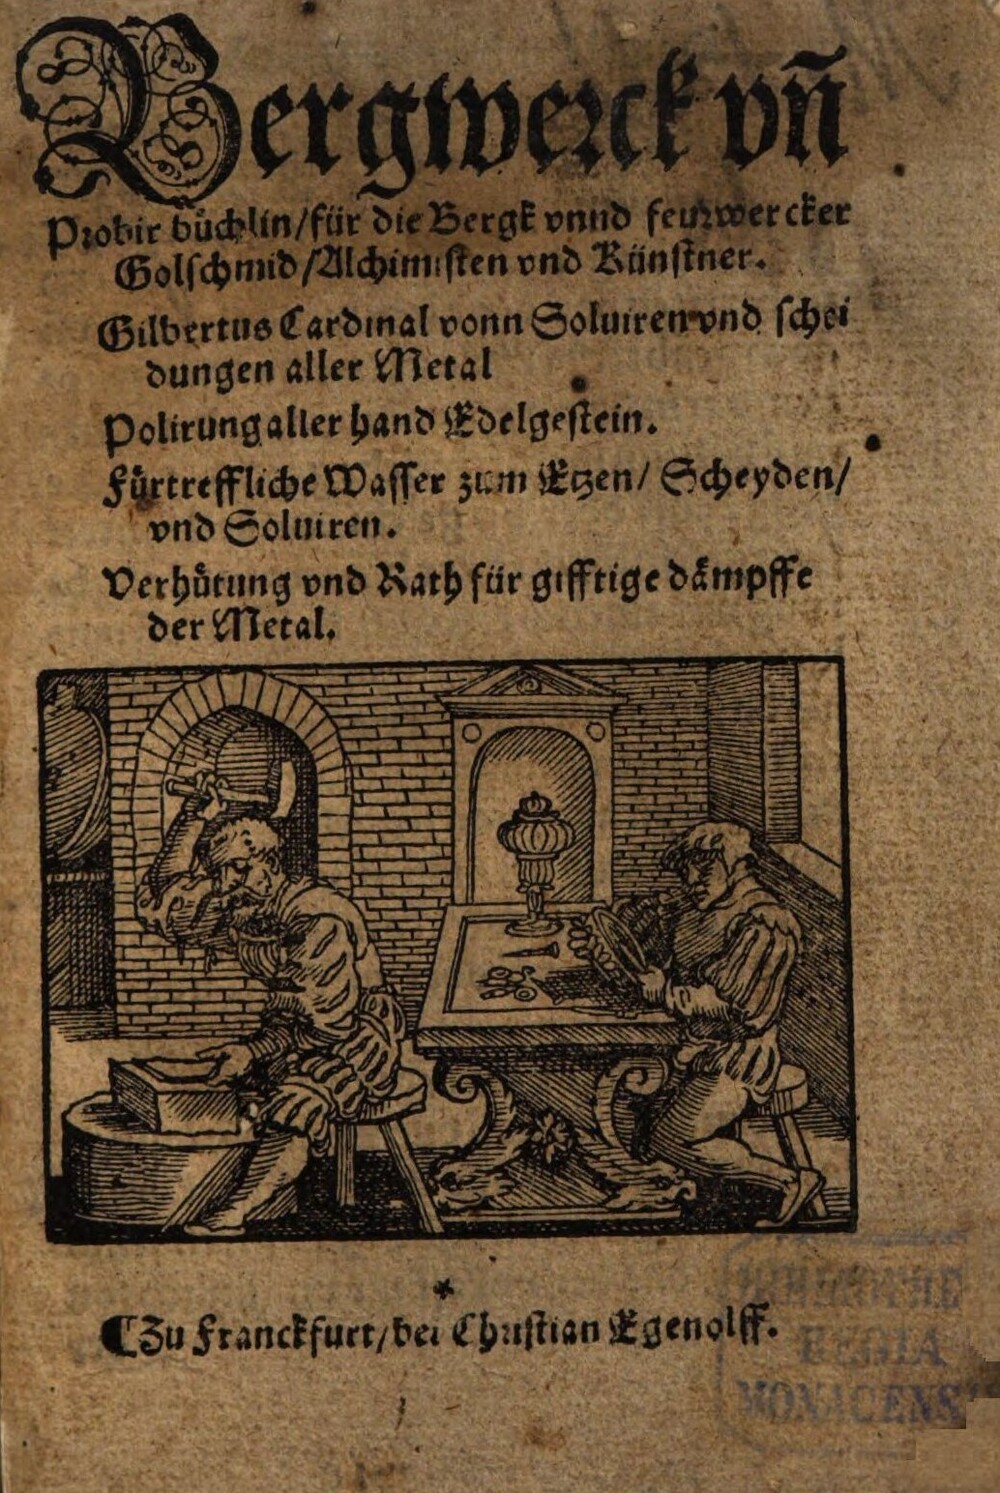 Bergwerck vñ
Probir büchlin/für die Bergk vnnd feurwercker
Golschmid/Alchimisten vnd Künstner.
Gilbertus Cardinal vonn Soluiren vnd schei
dungen aller Metal
Polirung aller hand Edelgestein.
Fürtreffliche Wasser zum Etzen/ Scheyden/
vnd Soluiren.
Verhůtung vnd Rath für gifftige dämpffe
der Metal.
Zu Franckfurt/bei Christian Egenolff.
BIBLIOTHE
REGIA
MONACENS